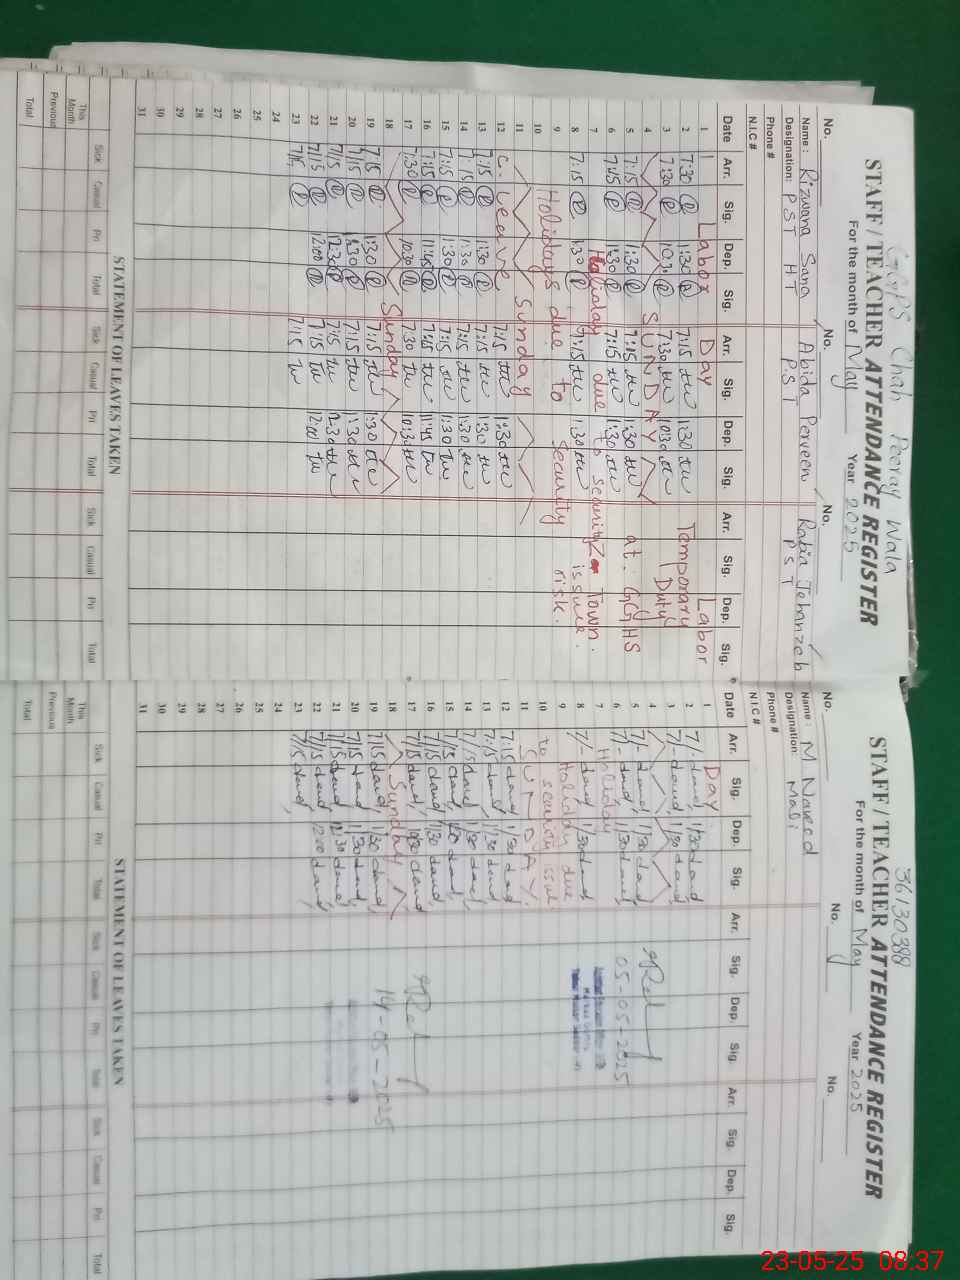 GGPS Chah Peeray Wala
STAFF / TEACHER ATTENDANCE REGISTER
For the month of May Year 2025
No. No. No.
Name: Rizwana Sana Abida Perveen Rabia Jehanzeb
Designation: PST HT P.S.T P S T
Phone #
N.I.C #
Date Arr. Sig. Dep. Sig. Arr. Sig. Dep. Sig. Arr. Sig. Dep. Sig.
1 Labor Day Labor
2 7:30 1:30 7:15 1:30 Temporary
3 7:30 10:30 7:30 10:30 Duty
4 SUNDAY
5 7:15 1:30 7:15 1:30 at GGHS
6 7:45 1:30 7:15 1:30
7 Holiday due to security Town.
8 7:15 1:30 7:15 1:30 issue.
9 Holidays due to security risk.
10
11 Sunday
12 C. Leave 7:15 1:30
13 7:15 1:30 7:15 1:30
14 7:15 1:30 7:15 1:30
15 7:15 1:30 7:15 1:30
16 7:15 11:45 7:15 11:45
17 7:30 10:30 7:30 10:30
18 Sunday
19 7:15 1:30 7:15 1:30
20 7:15 1:30 7:15 1:30
21 7:15 12:30 7:15 12:30
22 7:15 12:00 7:15 12:00
23 7:15 7:15
24
25
26
27
28
29
30
31
STATEMENT OF LEAVES TAKEN
Sick Casual Pri Total Sick Casual Pri Total Sick Casual Pri Total
This Month
Previous
Total
36130388
STAFF / TEACHER ATTENDANCE REGISTER
For the month of May Year 2025
No. No. No.
Name: M Naveed
Designation: Mali
Phone #
N.I.C #
Date Arr. Sig. Dep. Sig. Arr. Sig. Dep. Sig. Arr. Sig. Dep. Sig.
1 Day
2 7/- 1/30
3 7/- 1/30
4
5 7/- 1/30
6 7/- 1/30
05-05-2025
7 Holiday
8 7/- 1/30
9 Holiday due
10 to security issue
11 SUNDAY
12 7:15 1/30
13 7:15 1/30
14 7/15 1/30
15 7/15 1/30
16 7/15 1/30
17 7/15
18 Sunday
14-05-2025
19 7/15 1/30
20 7/15 1/30
21 7/15 12/30
22 7/15 12:00
23 7/15
24
25
26
27
28
29
30
31
STATEMENT OF LEAVES TAKEN
Sick Casual Pri Total Sick Casual Pri Total Sick Casual Pri Total
This Month
Previous
Total
23-05-25 08:37